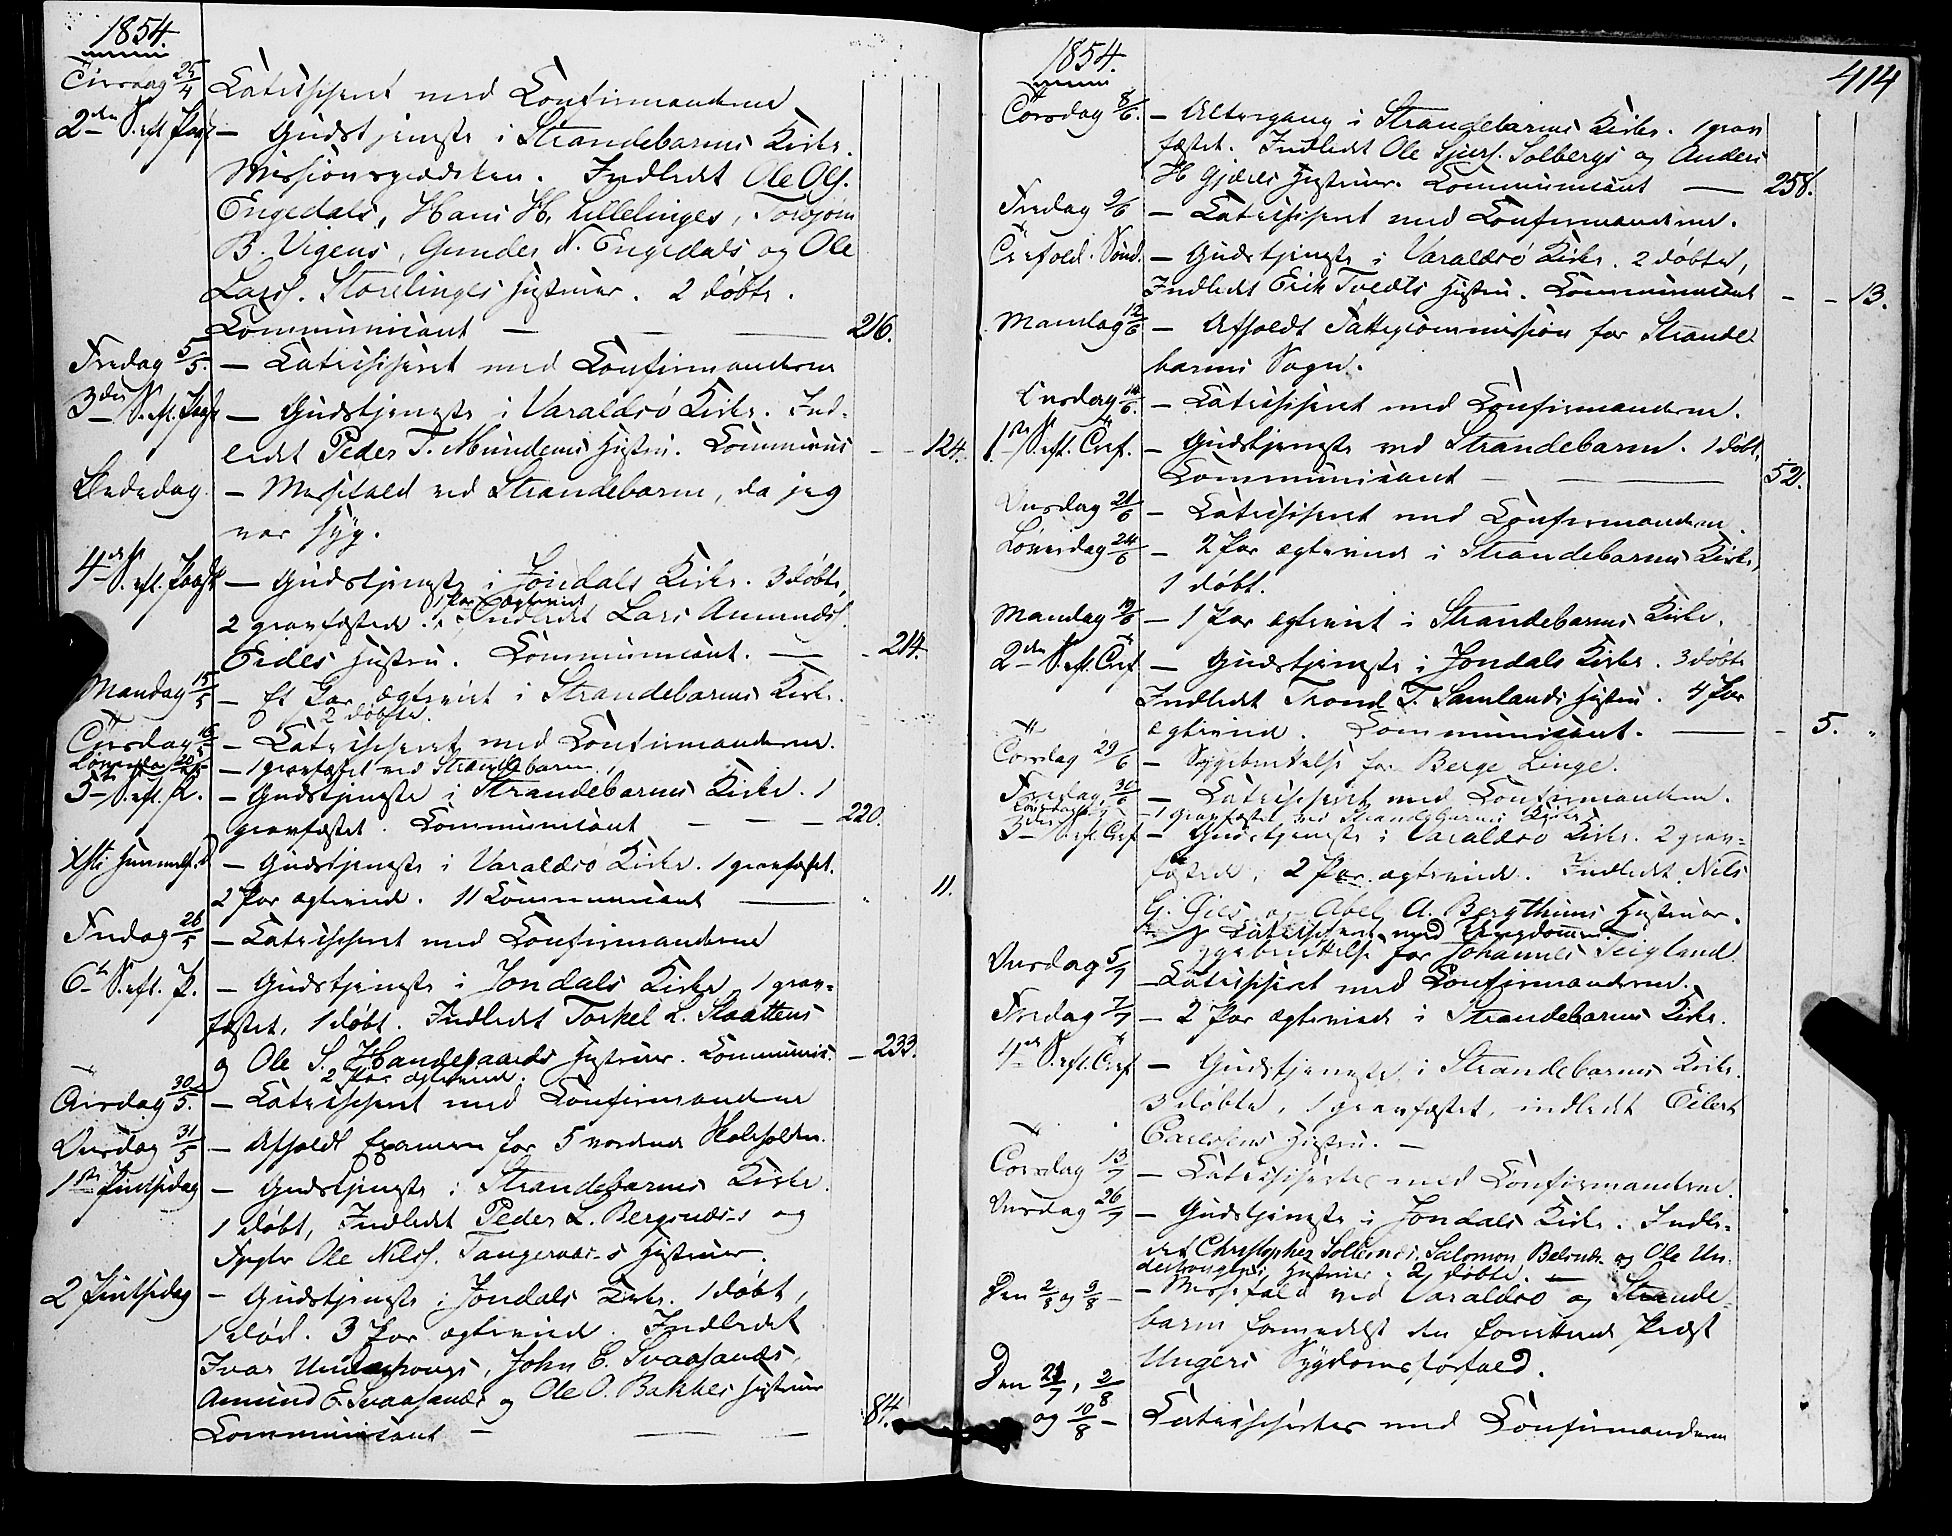 1854.
Tirsdag 25/4 Catechiseret med Confirmanderne
2den S. eft. Paaske – Gudstjeneste i Strandebarms Kirke.
Missionsprædiken. Indledet Ole Ols.
Engedals, Hans H. Lillelinges, Torbjørn
B. Vigens, Gunder N. Engedals, og Ole
Larss. Storelinges Hustruer. 2 døbte.
Communicant — 216.
Fredag 5/5. – Catechiseret med Confirmanderne
3die S. eft. Paaske – Gudstjeneste i Varaldsö Kirke. Ind-
ledet Peder T. Mundems Hustru. Communic – – 124.
Bededag – Messefald ved Strandebarm, da jeg
var syg.
4de S. eft. Paaske – Gudstjeneste i Jondals Kirke. 3 døbte,
1 Par ægteviet
2 gravfæstede. Indledet Lars Amunds.
Eides Hustru. Communicant. — 214.
Mandag 15/5 – Et Par ægteviet i Strandebarms Kirke.
2 døbte.
Tirsdag 16/5 – Catechiseret med Confirmanderne.
Løverdag 20/5 – 1 gravfæstet ved Strandebarm
5te S. eft. P. – Gudstjeneste i Strandebarms Kirke. 1
gravfæstet. Communicant – – – 220.
Xsti Himmelf. D – Gudstjeneste i Varaldsö Kirke. 1 gravfæstet.
2 Par ægteviede. 11 Communicant — 11.
Fredag 26/5 – Catechiseret med Confirmanderne
6te S. eft. P. – Gudstjeneste i Jondals Kirke 1 grav-
fæstet, 1 døbt. Indledet Torkel L. Slaattens
og Ole S. Handegaards Hustruer. Communic. – 233.
2 Par ægteviede.
Tirsdag 30/5. – Catechiseret med Confirmanderne
Onsdag 31/5 – Afholdt Examen for 5 vordende Skoleholdere.
1ste Pintsedag – Gudstjeneste i Strandebarms Kirke.
1 døbt, Indledet Peder L. Bergsnæs-s og
Ole Nilss. Tangeraas-s Hustruer.
2 Pintsedag – Gudstjeneste i Jondals Kirke. 1 døbt,
1 død. 3 Par ægteviede. Indledet
Ivar Underhougs, John E. Svaasands,
Amund E. Svaasands og Ole O. Bakkes Hustruer
Communicant – — — 84.
414
1854.
Torsdag 8/6. – Altergang i Strandebarms Kirke. 1 grav
fæstet. Indledet Ole Sjurs. Solbergs og Anders
H Gjæres Hustruer. Communicant — 258.
Fredag 9/6 – Catechiseret med Confirmanderne.
Trefold. Sönd. – Gudstjeneste i Varaldsö Kirke. 2 döbte,
Indledt Erik Tvedts Hustru. Communicant – – 13.
Mandag 12/6 – Afholdt Fattigcommission for Strande
barms Sogn.
Onsdag 14/6. – Catechiseret med Confirmanderne.
1ste S. eft. Tref. – Gudstjeneste ved Strandebarm. 1 døbt.
Communicant – — 52.
Onsdag 21/6 – Catechiseret med Confirmanderne.
Löverdag 24/6 – 2 Par ægteviede i Strandebarms Kirke,
1 döbt.
Mandag 19/6 – 1 Par ægteviet i Strandebarms Kirke.
2den S. eft. Tref. – Gudstjeneste i Jondals Kirke. 3 döbte
Indledet Trond T. Samlands Hustru. 4 Par
ægteviede. Communicant. — – 5. „
Torsdag 29/6 – Sygeberettelse for Berge Linge.
Fredag 30/6 – Catechiseret med Confirmanderne.
Löverdag – 1 gravfæstet ved Strandebarms Kirke
3die S. eft. Tref – Gudstjeneste i Varaldsö Kirke. 2 grav-
fæstede, 2 Par ægteviede. Indledet Nils
G. Gjers og Abel A. Bergthuns Hustruer.
Catechiseret med Ungdommen.
Sygeberettelse for Johannes Teigland.
Onsdag 5/7 – Catechiseret med Confirmanderne.
Fredag 7/7 – 2 Par ægteviede i Strandebarms Kirke.
4de S. eft. Tref – Gudstjeneste i Strandebarms Kirke.
3 døbte, 1 gravfæstet, indledet Eilert
Carlsens Hustru. –
Torsdag 13/7 – Catechisertes med Confirmanderne.
Onsdag 26/7 – Gudstjeneste i Jondals Kirke. Indle-
det Christopher Solesnes, Salomon Belsnes og Ole Un-
derhougs Hustruer. 2 döbte. –
Den 2/8 og 9/8 – – Messefald ved Varaldsö og Strande-
barm formedelst den forrettende Præst
Ungers Sygdomsforfald.
Den 21/7, 2/8
og 10/8 – Catechisertes med Confirmanderne